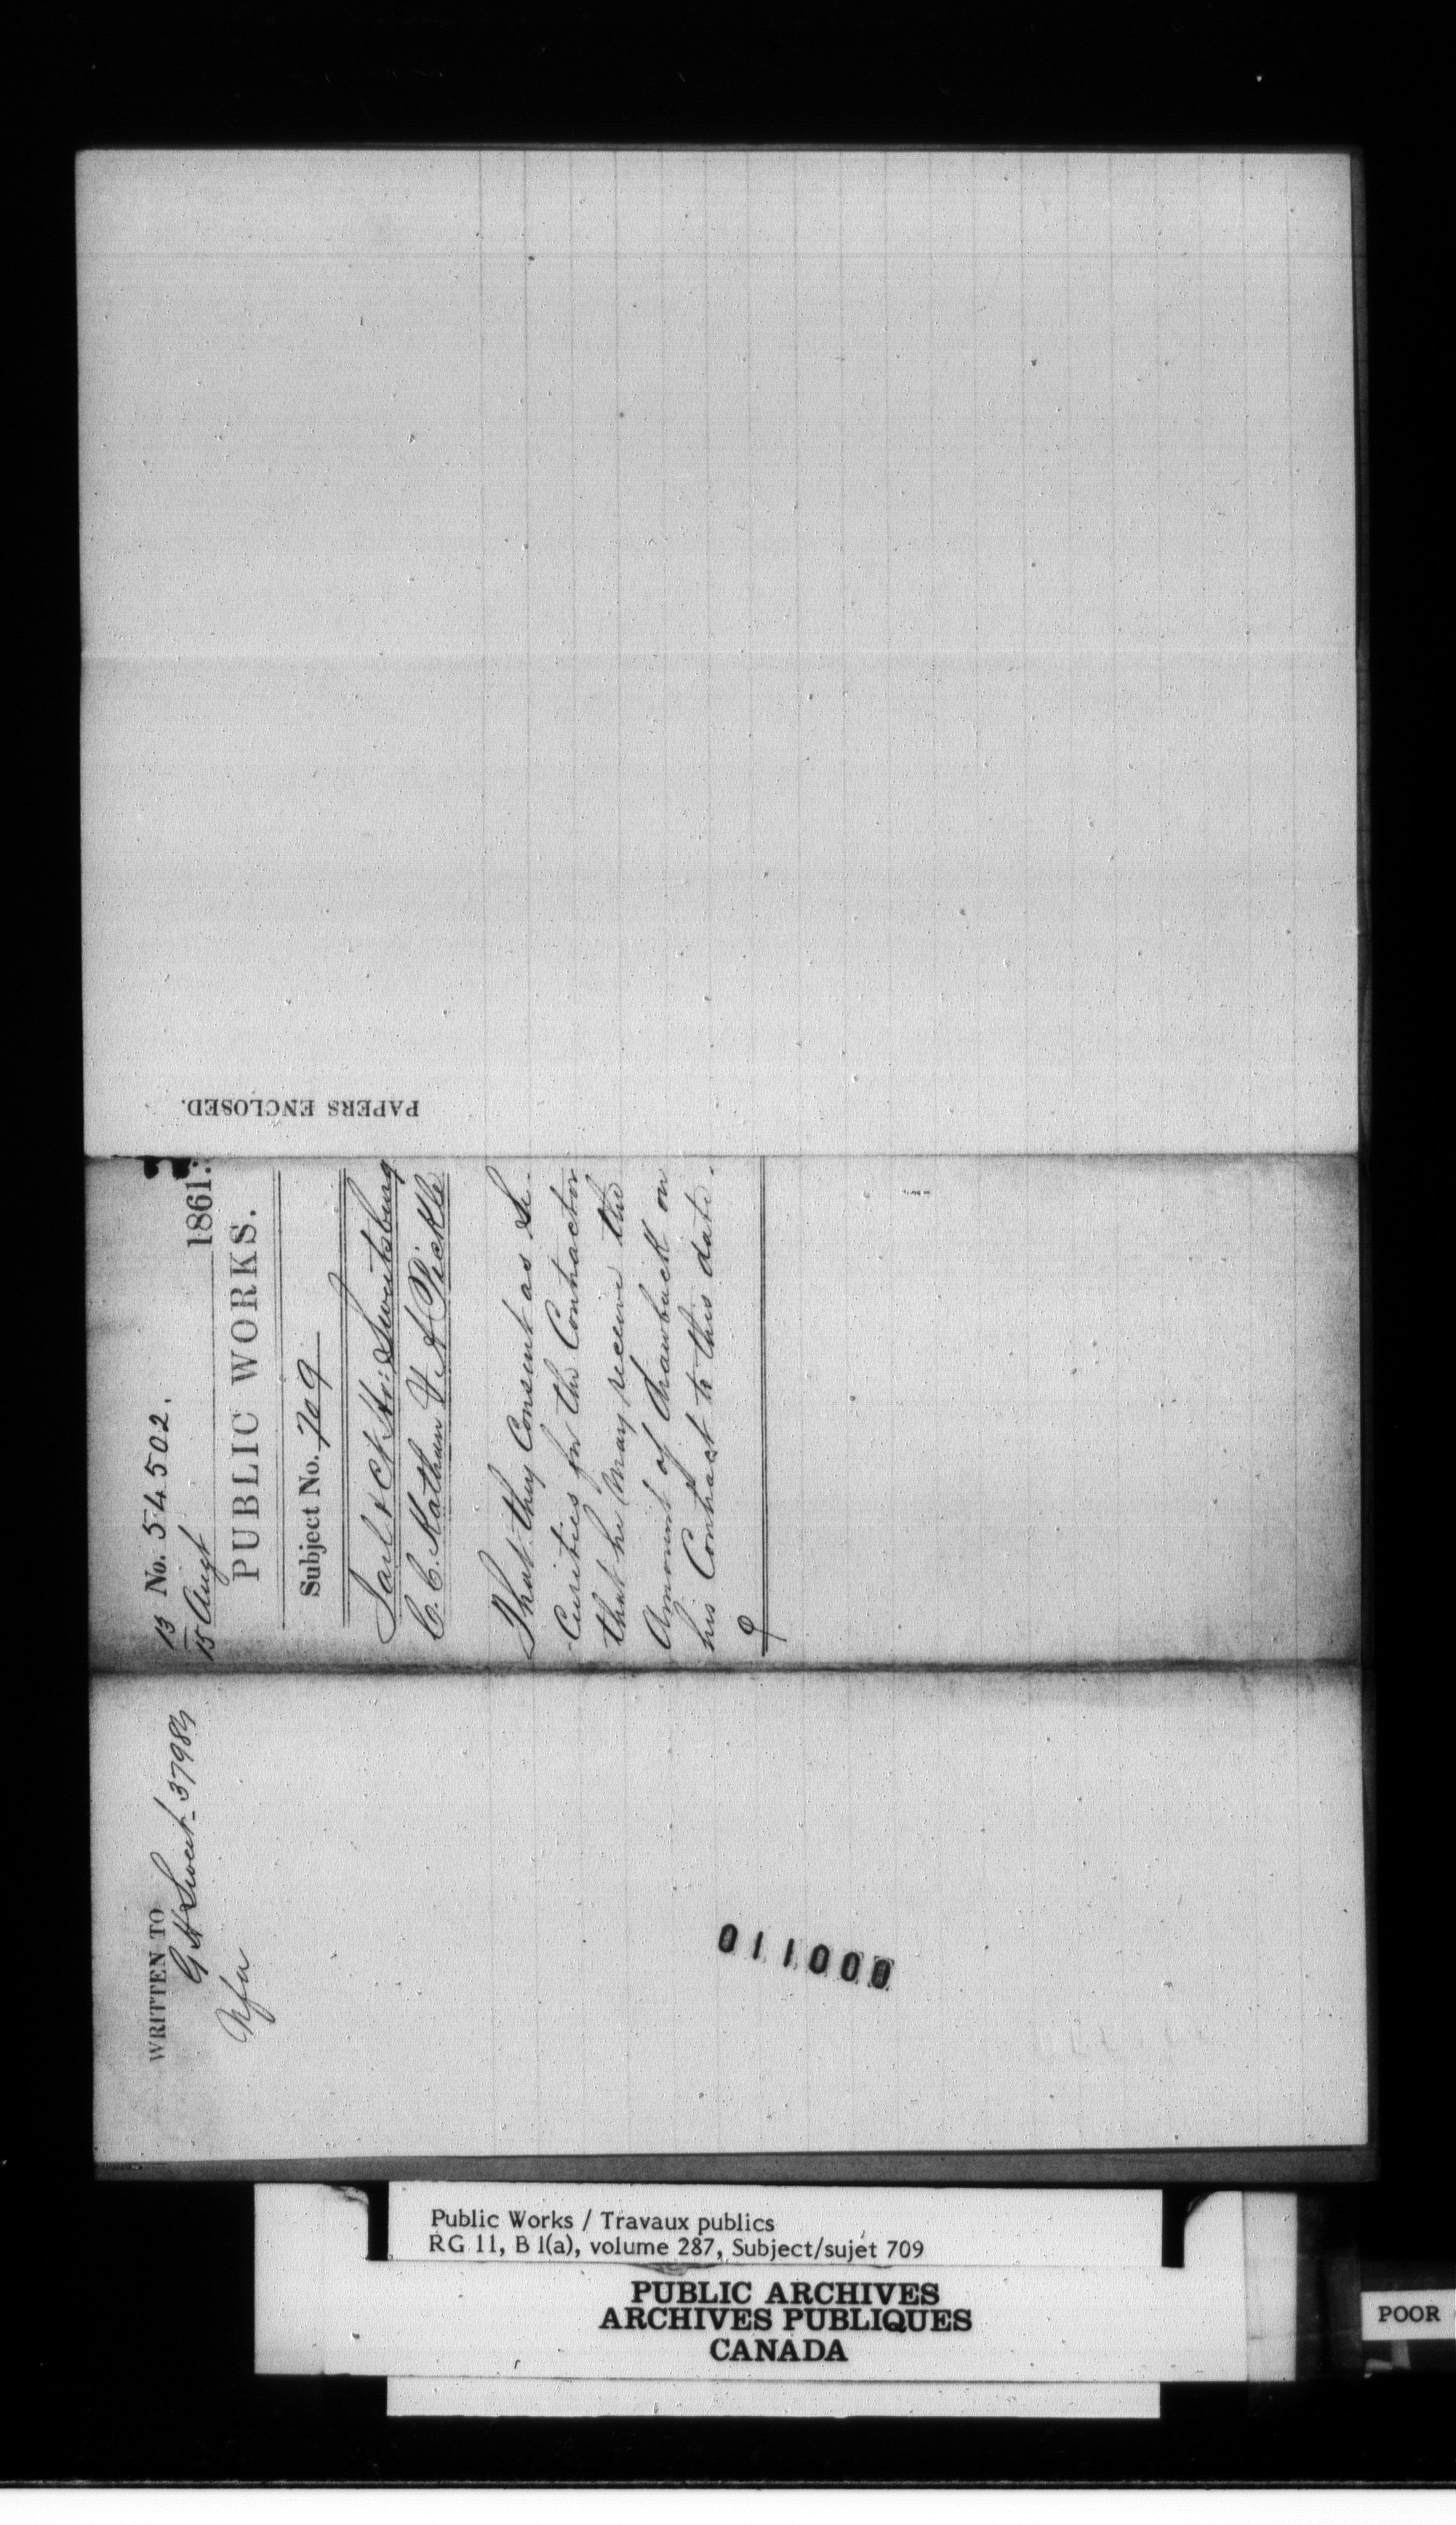 PAPERS ENCLOSED.
13 No. 54502.
15 Augt 1861.
PUBLIC WORKS.
Subject No. 709
Jail & Ct. Ho: Sweitsburg
C. C. Kathan & A Pickle
That they Consent as Se-
-curities for the Contractor
that he may receive the
Amount of drawback on
his Contract to this date.
WRITTEN TO
G H Sweet - 37984
Nfa
011000
Public Works / Travaux publics
RG 11, B 1(a), volume 287, Subject/sujet 709
PUBLIC ARCHIVES
ARCHIVES PUBLIQUES
CANADA
POOR